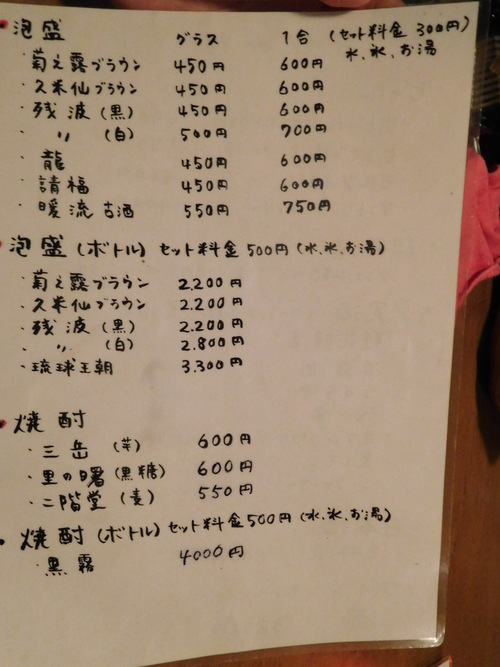 ・泡盛 グラス 1合 (セット料金 300円) 水、氷、お湯
・菊之露ブラウン 450円 600円
・久米仙ブラウン 450円 600円
・残波(黒) 450円 600円
・〃(白) 500円 700円
・龍 450円 600円
・請福 450円 600円
・暖流古酒 550円 750円
・泡盛(ボトル) セット料金500円(水、氷、お湯)
・菊之露ブラウン 2.200円
・久米仙ブラウン 2.200円
・残波(黒) 2.200円
・〃(白) 2.800円
・琉球王朝 3.300円
・焼酎
・三岳(芋) 600円
・里の曙(黒糖) 600円
・二階堂(麦) 550円
・焼酎(ボトル) セット料金500円(水、氷、お湯)
・黒霧 4000円